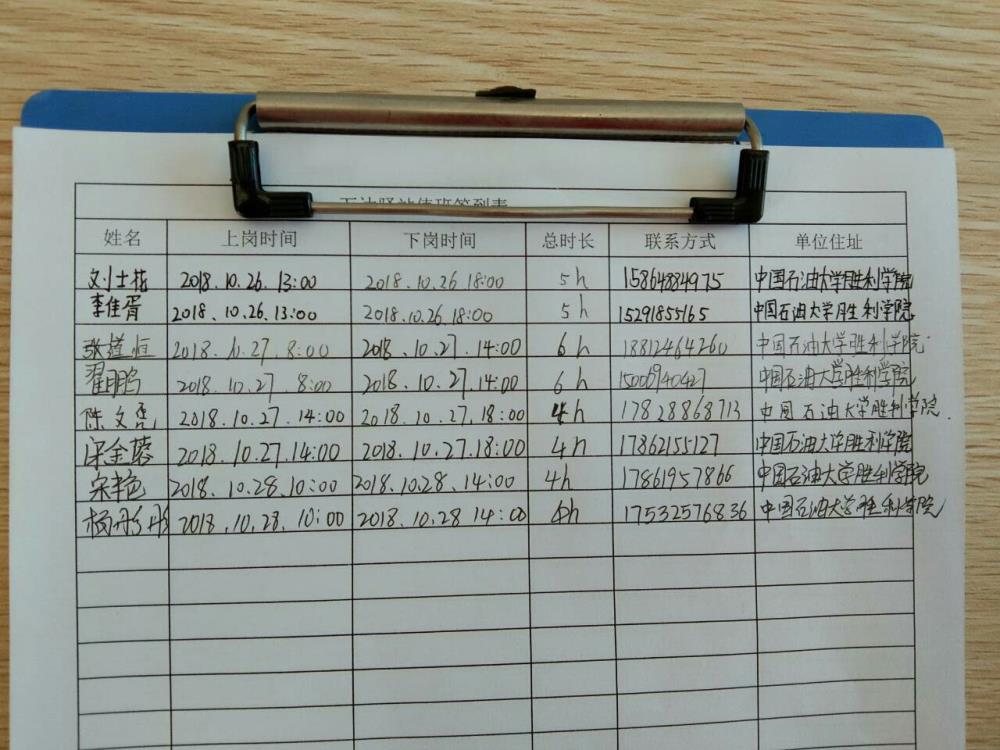 值班签到表
姓名 上岗时间 下岗时间 总时长 联系方式 单位住址
刘士花 2018.10.26.13:00 2018.10.26 18:00 5h 15864884975 中国石油大学胜利学院
李佳胥 2018.10.26.13:00 2018.10.26.18:00 5h 15291855165 中国石油大学胜利学院
张道恒 2018.10.27.8:00 2018.10.27.14:00 6h 18812464260 中国石油大学胜利学院
翟鹏 2018.10.27.8:00 2018.10.27.14:00 6h 中国石油大学胜利学院
陈文亮 2018.10.27.14:00 2018.10.27.18:00 4h 17828868713 中国石油大学胜利学院.
宋金蓉 2018.10.27.14:00 2018.10.27.18:00 4h 17862155127 中国石油大学胜利学院
宋艳 2018.10.28.10:00 2018.10.28.14:00 4h 17861957866 中国石油大学胜利学院
杨彤彤 2018.10.28.10:00 2018.10.28 14:00 4h 17532576836 中国石油大学胜利学院